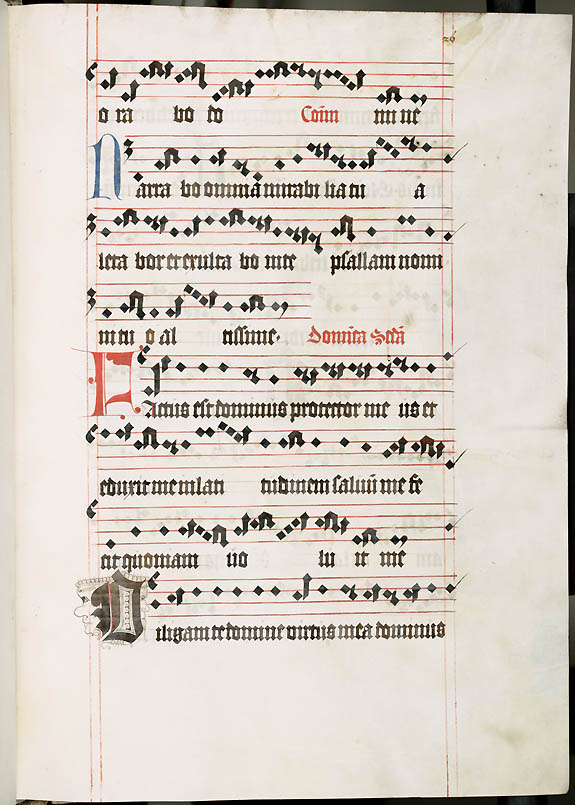 o ra bo do Com̃ mi ne
Narra bo omnia mirabi lia tu a
leta bor et exulta bo in te psallam nomi
ni tu o al tissime. Domĩca Scďa
Factus est dominus protector me us et
eduxit me in lati tudinem saluũ me fe
cit quoniam uo lu it me
Diligam te domine virtus mea dominus